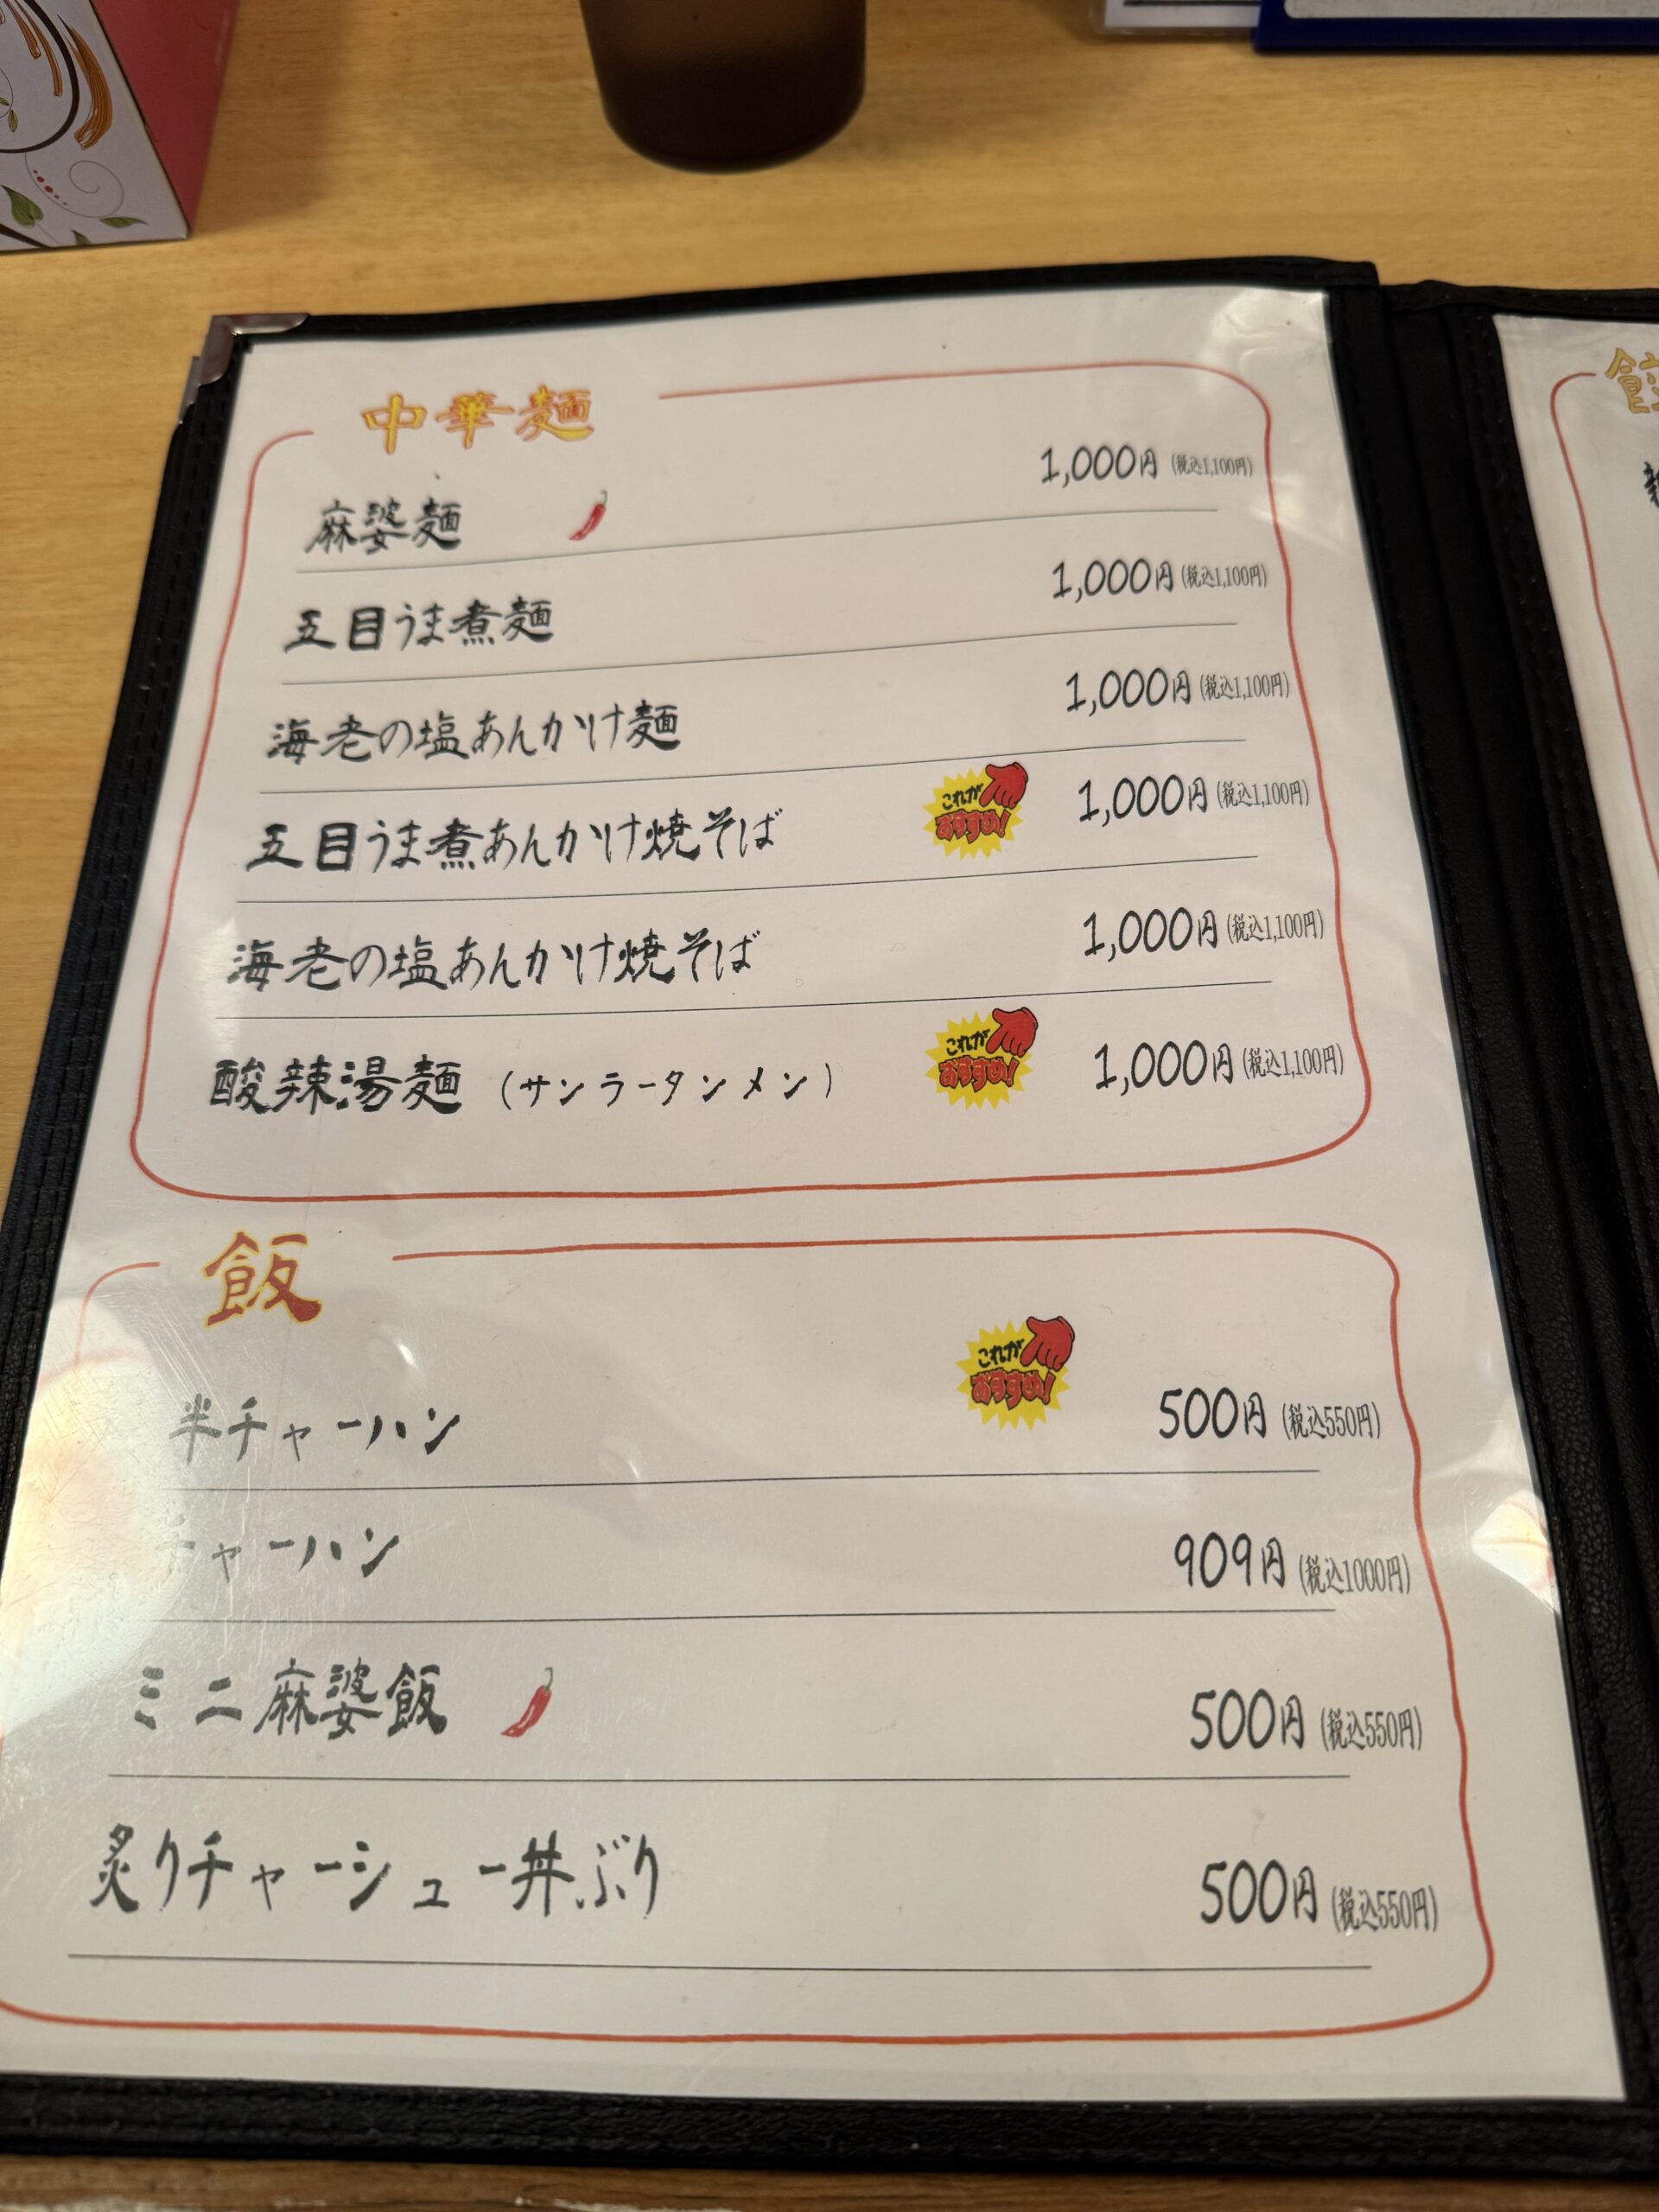 中華麺
麻婆麺 1,000円 (税込1,100円)
五目うま煮麺 1,000円 (税込1,100円)
海老の塩あんかけ麺 1,000円 (税込1,100円)
五目うま煮あんかけ焼そば これがおすすめ! 1,000円 (税込1,100円)
海老の塩あんかけ焼そば 1,000円 (税込1,100円)
酸辣湯麺 (サンラータンメン) これがおすすめ! 1,000円 (税込1,100円)
飯
半チャーハン これがおすすめ! 500円 (税込550円)
チャーハン 909円 (税込1000円)
ミニ麻婆飯 500円 (税込550円)
炙りチャーシュー丼ぶり 500円 (税込550円)